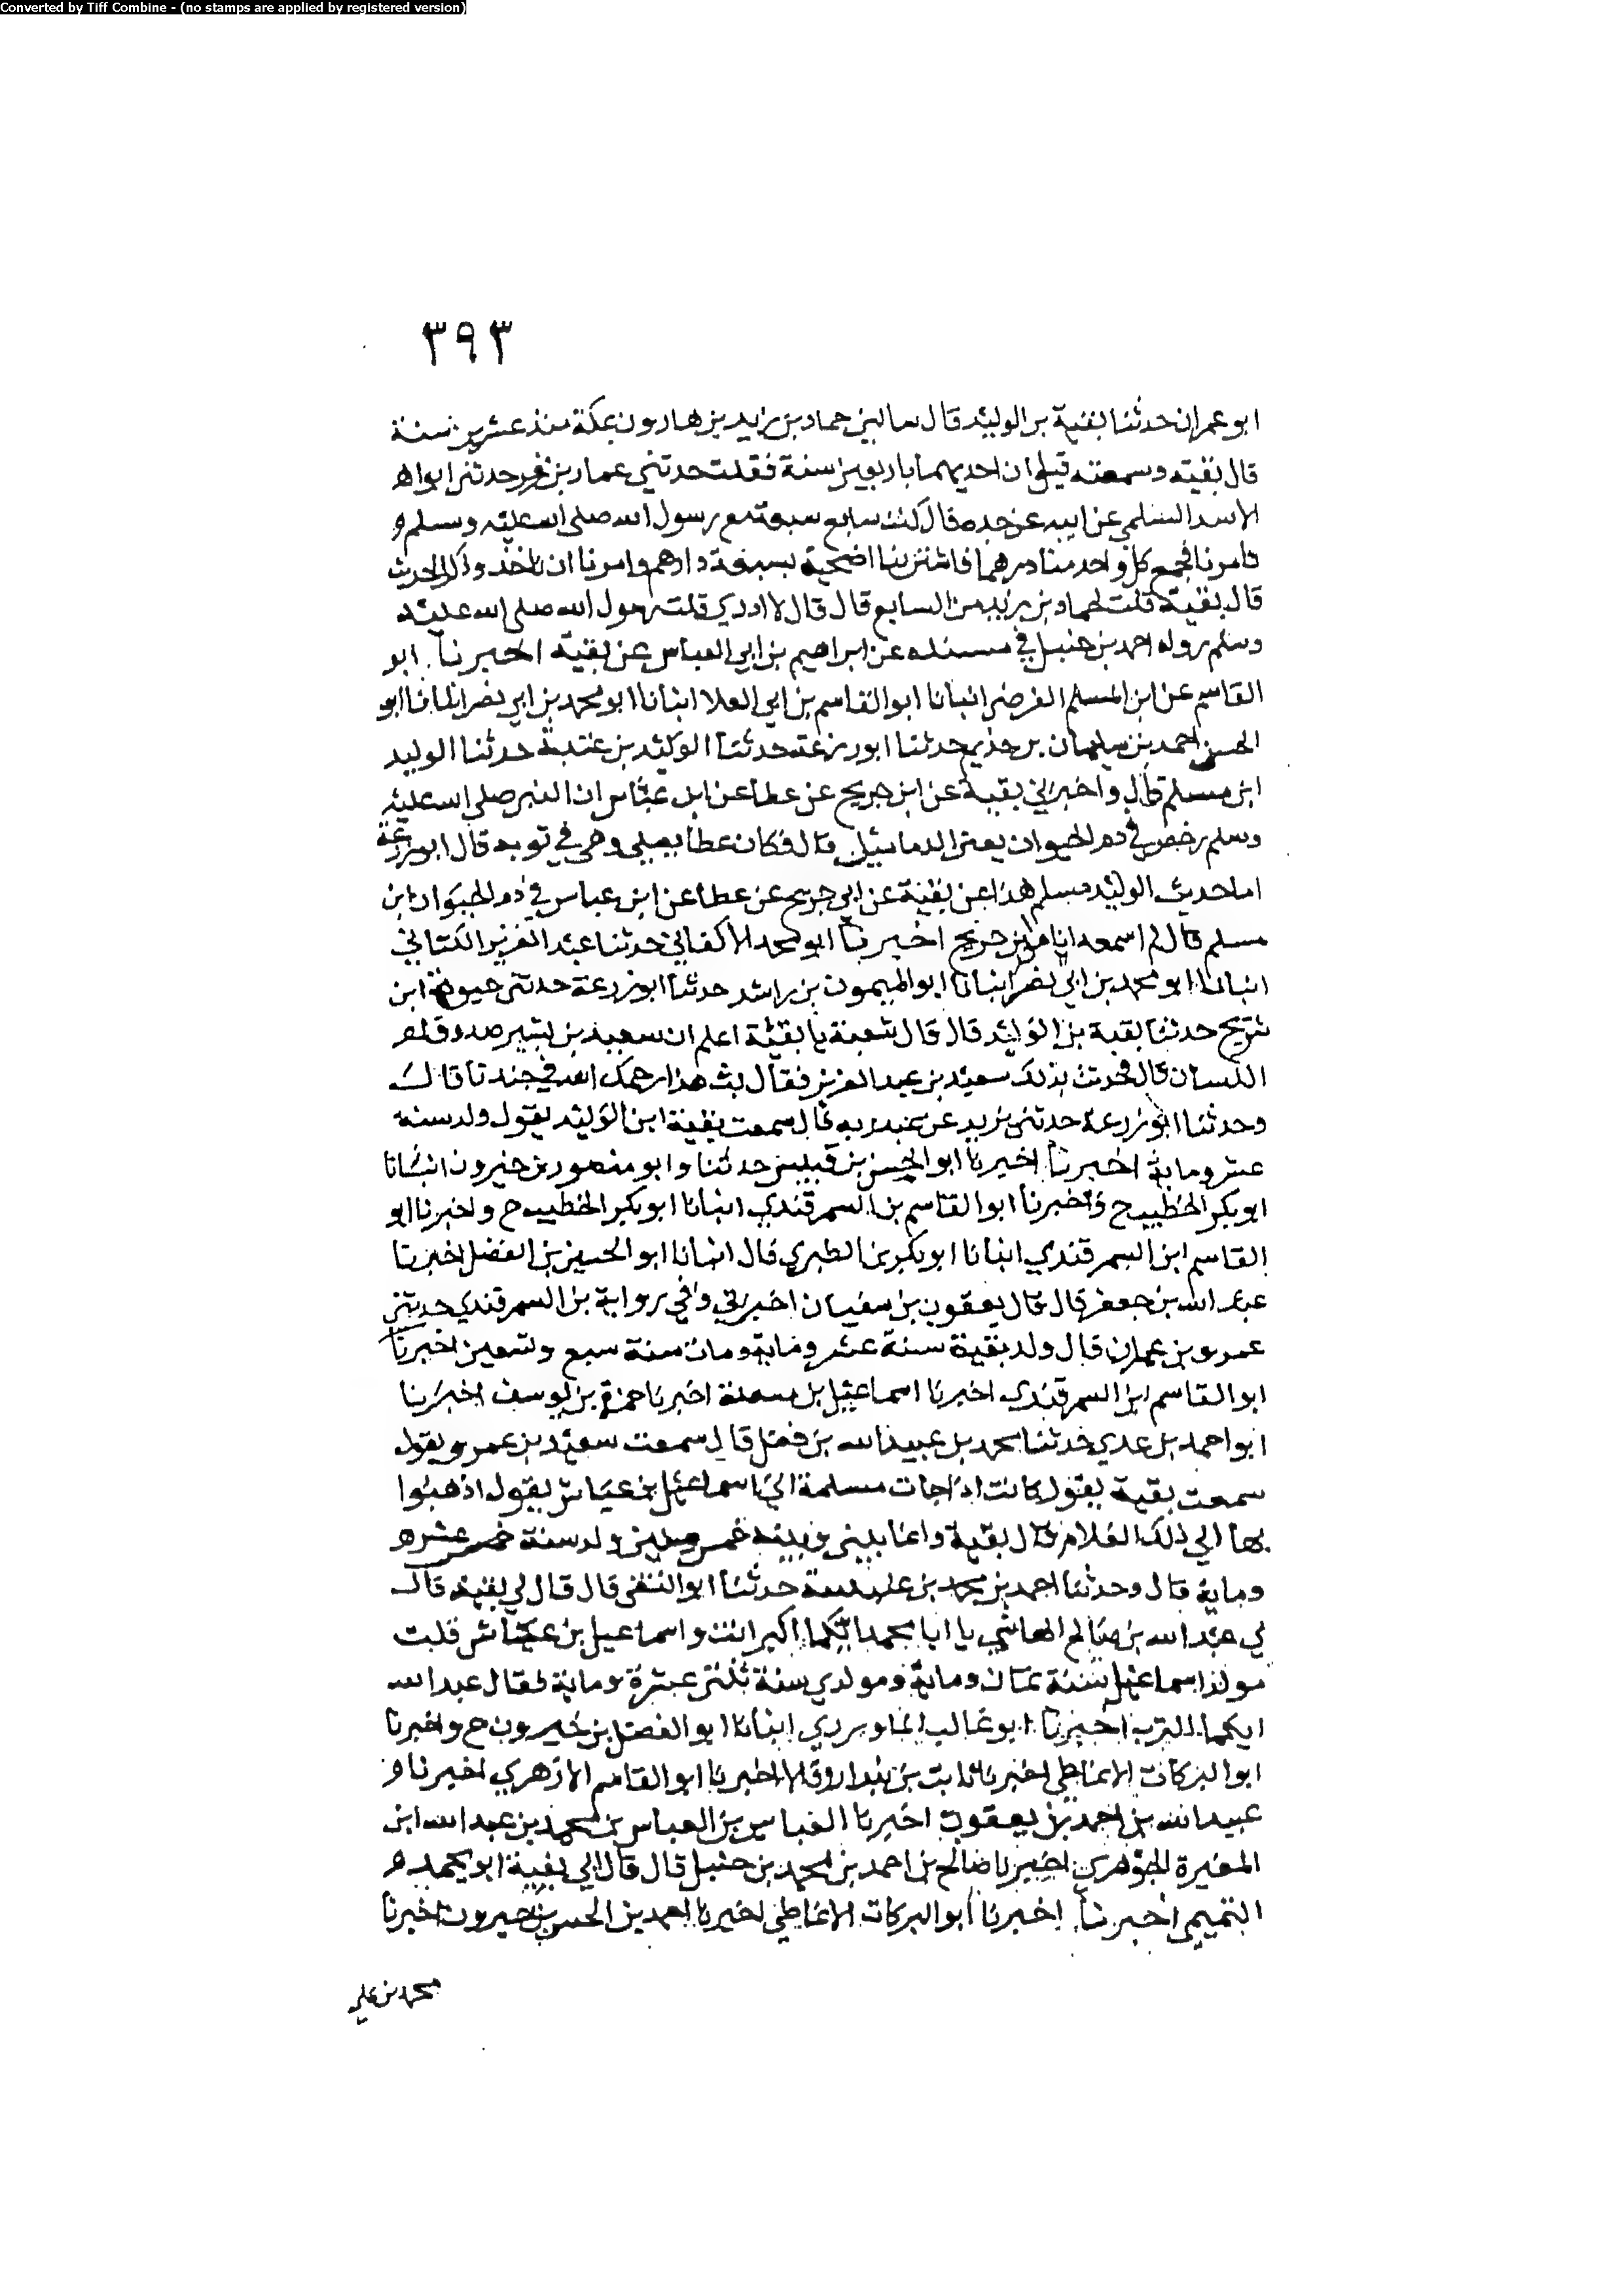 Converted by Tiff Combine - (no stamps are applied by registered version)
٣٩٣
ابو عمران حدثنا بقية بن الوليد قال سالني حماد بن زايد بن هارون بمكة منذ عشرين سنة
قال بقية وسمعته قبل ان احديهما باربعين سنة فقلت حدثني عمار بن نمر حدثني ابو اه
الاسد السلمي عن ابيه عن جده قال كنت سابع سبعة مع رسول الله صلى الله عليه وسلم و
فامرنا فجمع كل واحد منا درهما فاشترينا اضحية بسبعة دراهم وامرنا ان ناخذ وذكر الحديث
قال بقية قلت لحماد بن يزيد من السابع قال قال لا ادري قلت رسول الله صلى الله عليه
وسلم رواه احمد بن حنبل في مسنده عن ابراهيم بن ابي العباس عن بقية اخبرنا ابو
القاسم عن ابن المسلم الفرضي انبانا ابو القاسم بن ابي العلا انبانا ابو محمد بن ابي نصر انبانا ابو
الحسن احمد بن سليمان بن حذيم حدثنا ابو زرعة حدثنا الوليد بن عتبة حدثنا الوليد
ابن مسلم قال واخبرني بقية عن ابن جريج عن عطا عن ابن عباس ان النبي صلى الله عليه
وسلم رخص في دم الحيوان يعني الدماميل قال فكان عطا يصلي وهي في ثوبه قال ابو زرعة
اما حديث الوليد مسلم هذا عن بقية عن ابي جريج عن عطا عن ابن عباس في دم الحيوان ابن
مسلم قال لم اسمعه انا من ابن جريج اخبرنا ابو محمد الاكفاني حدثنا عبد العزيز الكتاني
انبانا ابو محمد بن ابي نصر انبانا ابو الميمون بن راشد حدثنا ابو زرعة حدثني حيوة ابن
شريح حدثنا بقية بن الوليد قال قال شعبة يا بقية اعلم ان سعيد بن بشير صدوق
اللسان قال فحدثت بذلك سعيد بن عبد العزيز فقال بث هذا رحمك الله في جندنا قال
وحدثنا ابو زرعة حدثني يزيد عن عبد ربه قال سمعت بقية ابن الوليد يقول ولد سنة
عشر وماية اخبرنا اخبرنا ابو الحسن بن قبيس حدثنا وابو منصور بن خيرون انبانا
ابو بكر الخطيب ح واخبرنا ابو القاسم بن السمرقندي انبانا ابو بكر الخطيب ح واخبرنا ابو
القاسم ابن السمرقندي انبانا ابو بكر بن الطبري قال انبانا ابو الحسين بن الفضل اخبرنا
عبد الله بن جعفر قال قال يعقوب بن سفيان اخبرني وفي رواية بن السمرقندي حدثني
عمرو بن عمران قال ولد بقية سنة عشر وماية ومات سنة سبع وتسعين اخبرنا
ابو القاسم ابن السمرقندي اخبرنا اسماعيل بن مسعدة اخبرنا حمزة بن يوسف اخبرنا
ابو احمد بن عدي حدثنا محمد بن عبيد الله بن فضل قال سمعت سعيد بن عمرو يقول
سمعت بقية يقول كانت اذا جات مسلمة الى اسماعيل بن عياش يقول اذهبوا
بها الى ذلك الغلام قال بقية وانما بيني وبينه خمس سنين ولد سنة خمس عشره
وماية قال وحدثنا احمد بن محمد بن عنبسة حدثنا ابو التقى قال قال لي بقية قال
لي عبد الله بن صالح الهاشمي يا ابا محمد ايكما اكبر انت واسماعيل بن عياش قلت
مولد اسماعيل سنة ثمان وماية ومولدي سنة ثنتي عشرة وماية فقال عبد الله
ايكما اخبرنا ابو غالب الماوردي انبانا ابو الفضل بن خيرون ح واخبرنا
ابو البركات الانماطي اخبرنا ثابت بن بندار وقالا اخبرنا ابو القاسم الازهري اخبرنا و
عبيد الله بن احمد بن يعقوب اخبرنا العباس بن العباس بن محمد بن عبد الله ابن
المغيرة الجوهري اخبرنا صالح بن احمد بن محمد بن حنبل قال قال ابي بقية ابو يحمد
التميمي اخبرنا اخبرنا ابو البركات الانماطي اخبرنا احمد بن الحسن بن خيرون اخبرنا
محمد بن علي